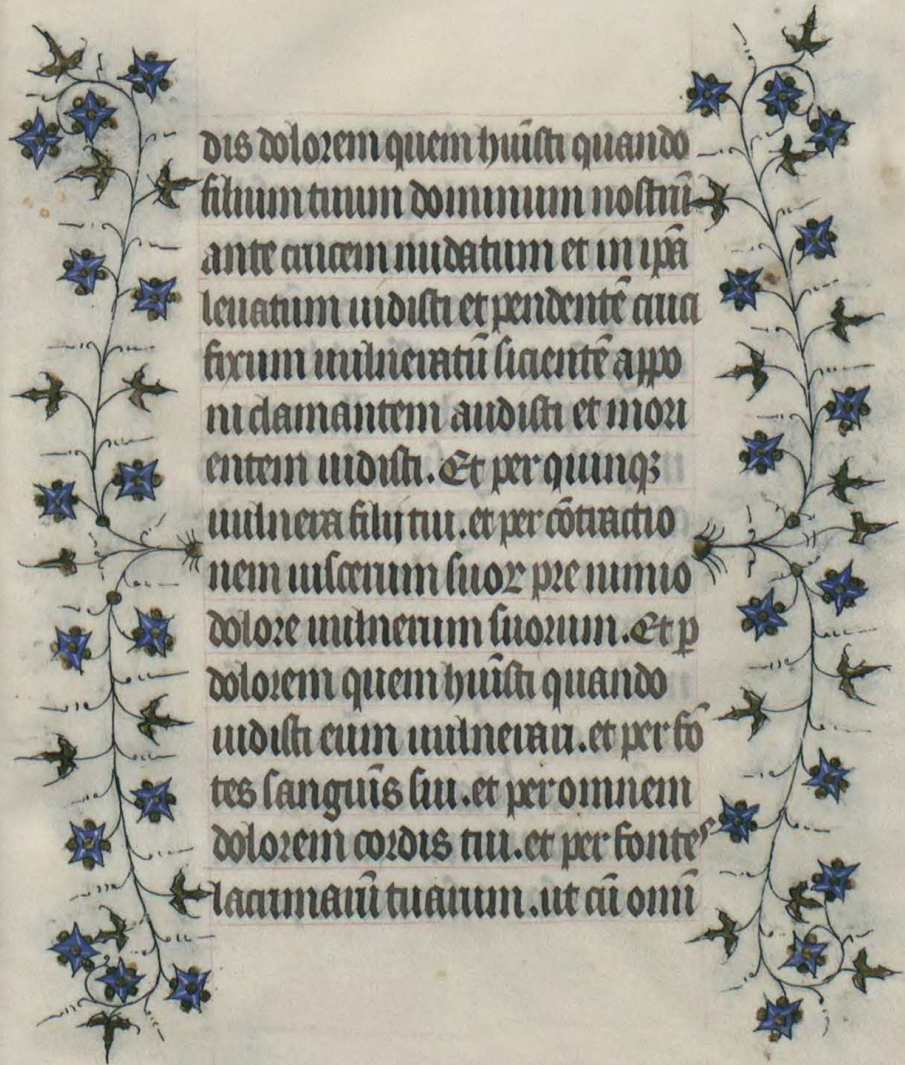 dis dolorem quem huīsti quando
filium tuum dominum nostrū
ante crucem nudatum et in ip̄a
leuatum uidisti et pendentē cruci
fixum uulneratū sicientē appo
ni clamantem audisti et mori
entem uidisti. Et per quinqꝫ
uulnera filij tui. et per cōtractio
nem uiscerum suoꝝ pre nimio
dolore uulnerum suorum. Et ꝑ
dolorem quem huīsti quando
uidisti eum uulnerari. et per fō
tes sanguīs sui. et per omnem
dolorem cordis tui. et per fontes
lacrimarū tuarum. ut cū omī